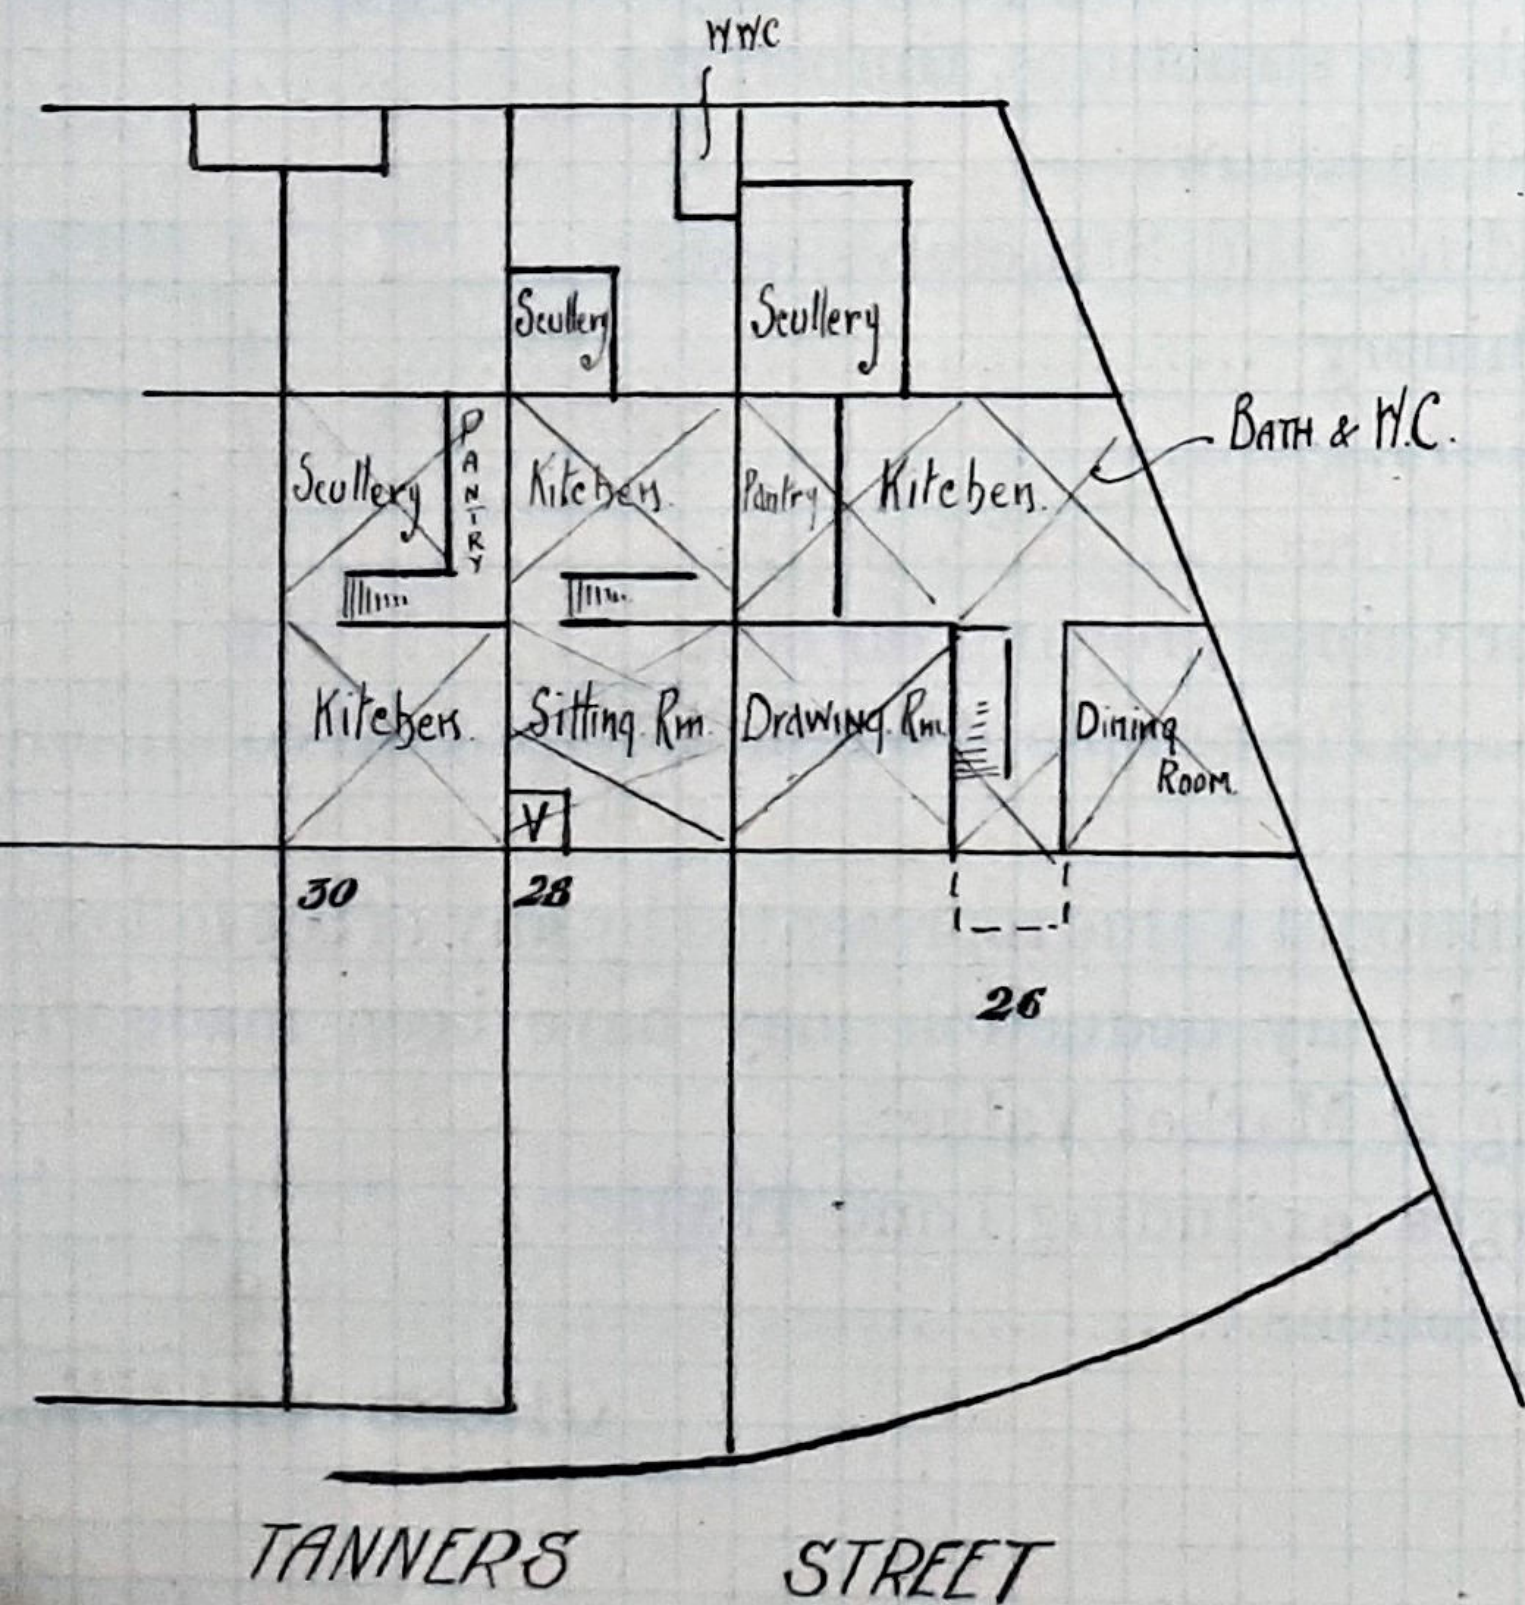 W.W.C
Scullery
Scullery
BATH & W.C.
Scullery
PANTRY
Kitchen.
Pantry
Kitchen.
Kitchen.
Sitting Rm.
Drawing Rm.
Dining
Room.
V
30
28
26
TANNERS STREET